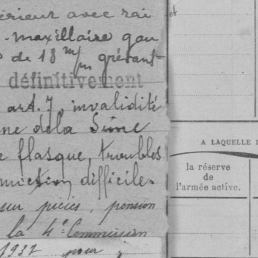 érieur avec rai
. maxillaire gau
de 13 m/m grévant
définitivement
art. 7, invalidité
ne de la 5ème
e flasque, troubles
miction difficile.
sur pièces, pension
la 4e Commission
1937 pour
A LAQUELLE
la réserve
de
l'armée active.